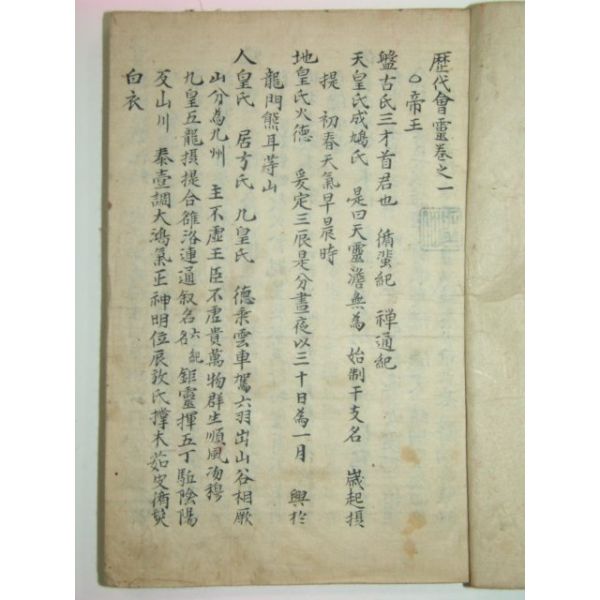 歷代會靈卷之一
○帝王
盤古氏三才首君也 循蜚紀 禅通紀
天皇氏成鳩氏 是曰天靈澹無為 始制干支名 歲起攝
提 初春天氣早晨時
地皇氏火德 爰定三辰是分晝夜以三十日為一月 興於
龍門熊耳等山
人皇氏 居方氏 九皇氏 德乘雲車駕六羽出山谷相厥
山分為九州 主不虛王臣不虛貴萬物群生順風沕穆
九皇五龍攝提合雒洛連通叙名名六紀鉅靈揮五丁駈陰陽
反山川 泰壹調大鴻氣正神明位辰敘氏撑木茹皮
白衣